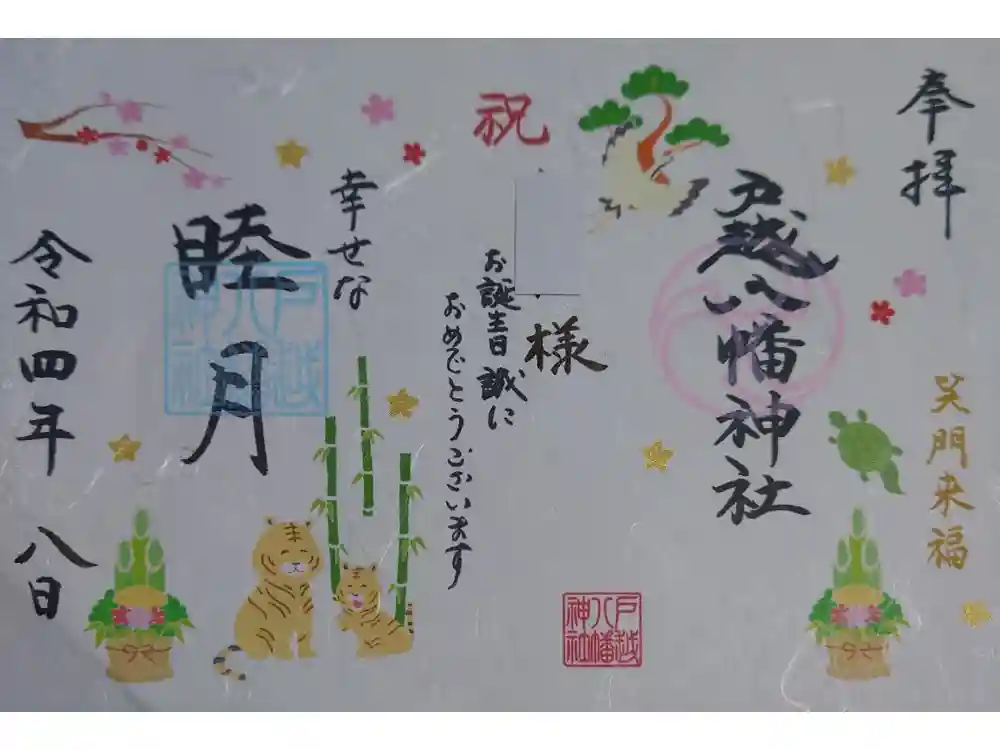 奉拝
笑門来福
戸越八幡神社
祝
様
お誕生日誠に
おめでとうございます
戸越
八幡
神社
幸せな
睦月
戸越
八幡
神社
令和四年 八日